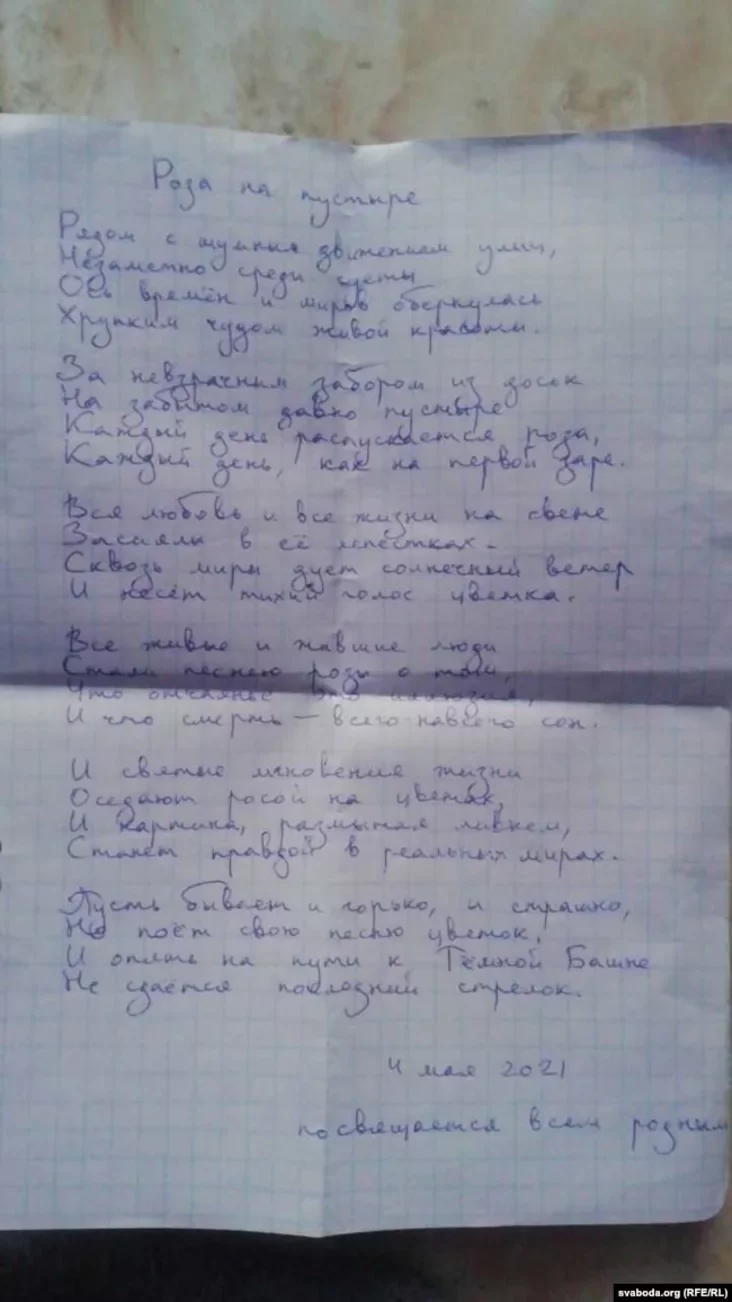 Роза на пустыре
Рядом с шумным движением улиц,
Незаметно среди суеты
Ось времён и миров обернулась
Хрупким чудом живой красоты.
За невзрачным забором из досок
На забытом давно пустыре
Каждый день распускается роза,
Каждый день, как на первой заре.
Вся любовь и все жизни на свете
Засияли в её лепестках.
Сквозь миры дует солнечный ветер
И несёт тихий голос цветка.
Все живые и жившие люди
Стали песнею розы о том,
Что отчаянье это иллюзия,
И что смерть – всего навсего сон.
И святые мгновения жизни
Оседают росой на цветах,
И картина, размытая ливнем,
Станет правдой в реальных мирах.
Пусть бывает и горько, и страшно,
Но поёт свою песню цветок,
И опять на пути к Тёмной Башне
Не сдаётся последний стрелок.
4 мая 2021
посвящается всем родным
svaboda.org (RFE/RL)